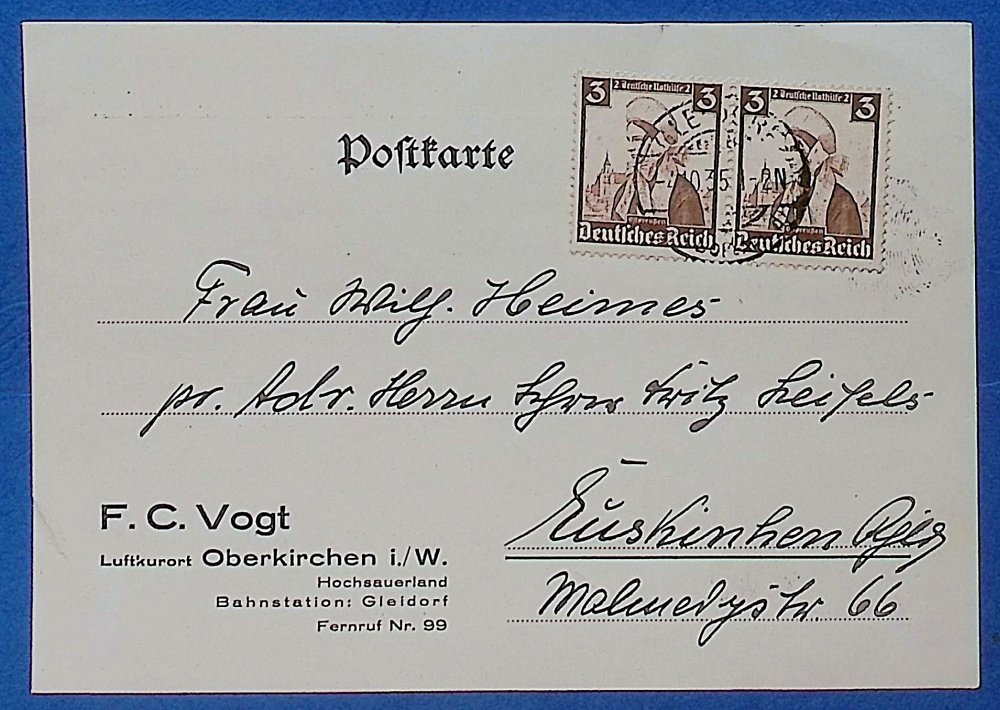 Postkarte
3 2 Deutsche Nothilfe 2 3
Ostpreußen
Deutsches Reich
3 2 Deutsche Nothilfe 2 3
Ostpreußen
Deutsches Reich
10.35 1-2N
Frau Wilh. Heimes
pr. Adr. Herrn Fritz Heifels
Euskirchen
Malmedystr. 66
F. C. Vogt
Luftkurort Oberkirchen i./W.
Hochsauerland
Bahnstation: Gleidorf
Fernruf Nr. 99